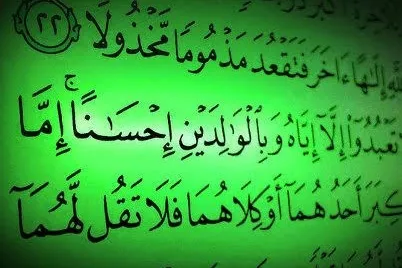 ٱللَّهِ إِلَـٰهًا ءَاخَرَ فَتَقْعُدَ مَذْمُومًا مَّخْذُولًا ٢٢
تَعْبُدُوٓا۟ إِلَّآ إِيَّاهُ وَبِٱلْوَٰلِدَيْنِ إِحْسَـٰنًا ۚ إِمَّا
ٱلْكِبَرَ أَحَدُهُمَآ أَوْ كِلَاهُمَا فَلَا تَقُل لَّهُمَآ